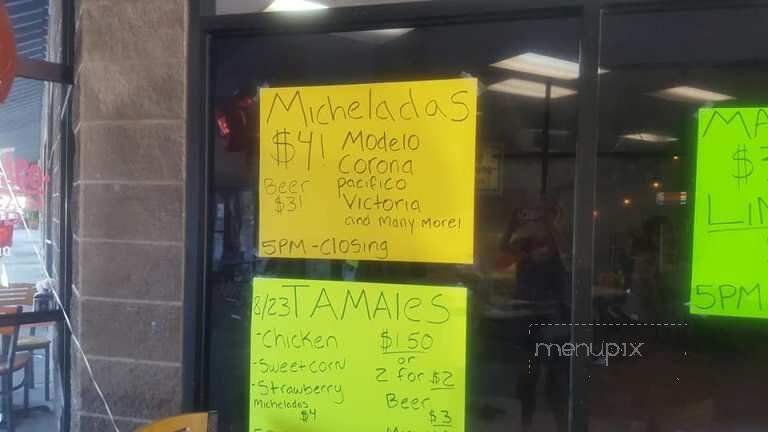 Micheladas
$4! Modelo
Corona
Beer Pacifico
$3! Victoria
and many more!
5PM-Closing
8/23 TAMAles
-Chicken $1.50
or
-Sweetcorn 2 for $2
-Strawberry
Micheladas Beer
$4 $3
MA
$
LIM
5PM
menupix